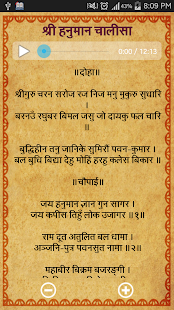 8:09 PM
श्री हनुमान चालीसा
0:00 / 12:13
॥दोहा॥
श्रीगुरु चरन सरोज रज निज मनु मुकुरु सुधारि
।
बरनउँ रघुबर बिमल जसु जो दायकु फल चारि
॥
बुद्धिहीन तनु जानिके सुमिरौं पवन-कुमार ।
बल बुधि बिद्या देहु मोहिं हरहु कलेस बिकार ॥
॥चौपाई॥
जय हनुमान ज्ञान गुन सागर ।
जय कपीस तिहुँ लोक उजागर ॥१॥
राम दूत अतुलित बल धामा ।
अञ्जनि-पुत्र पवनसुत नामा ॥२॥
महाबीर बिक्रम बजरङ्गी ।